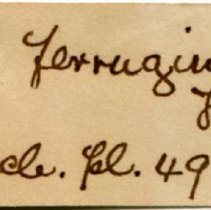 ferrugin
cb. pl. 49